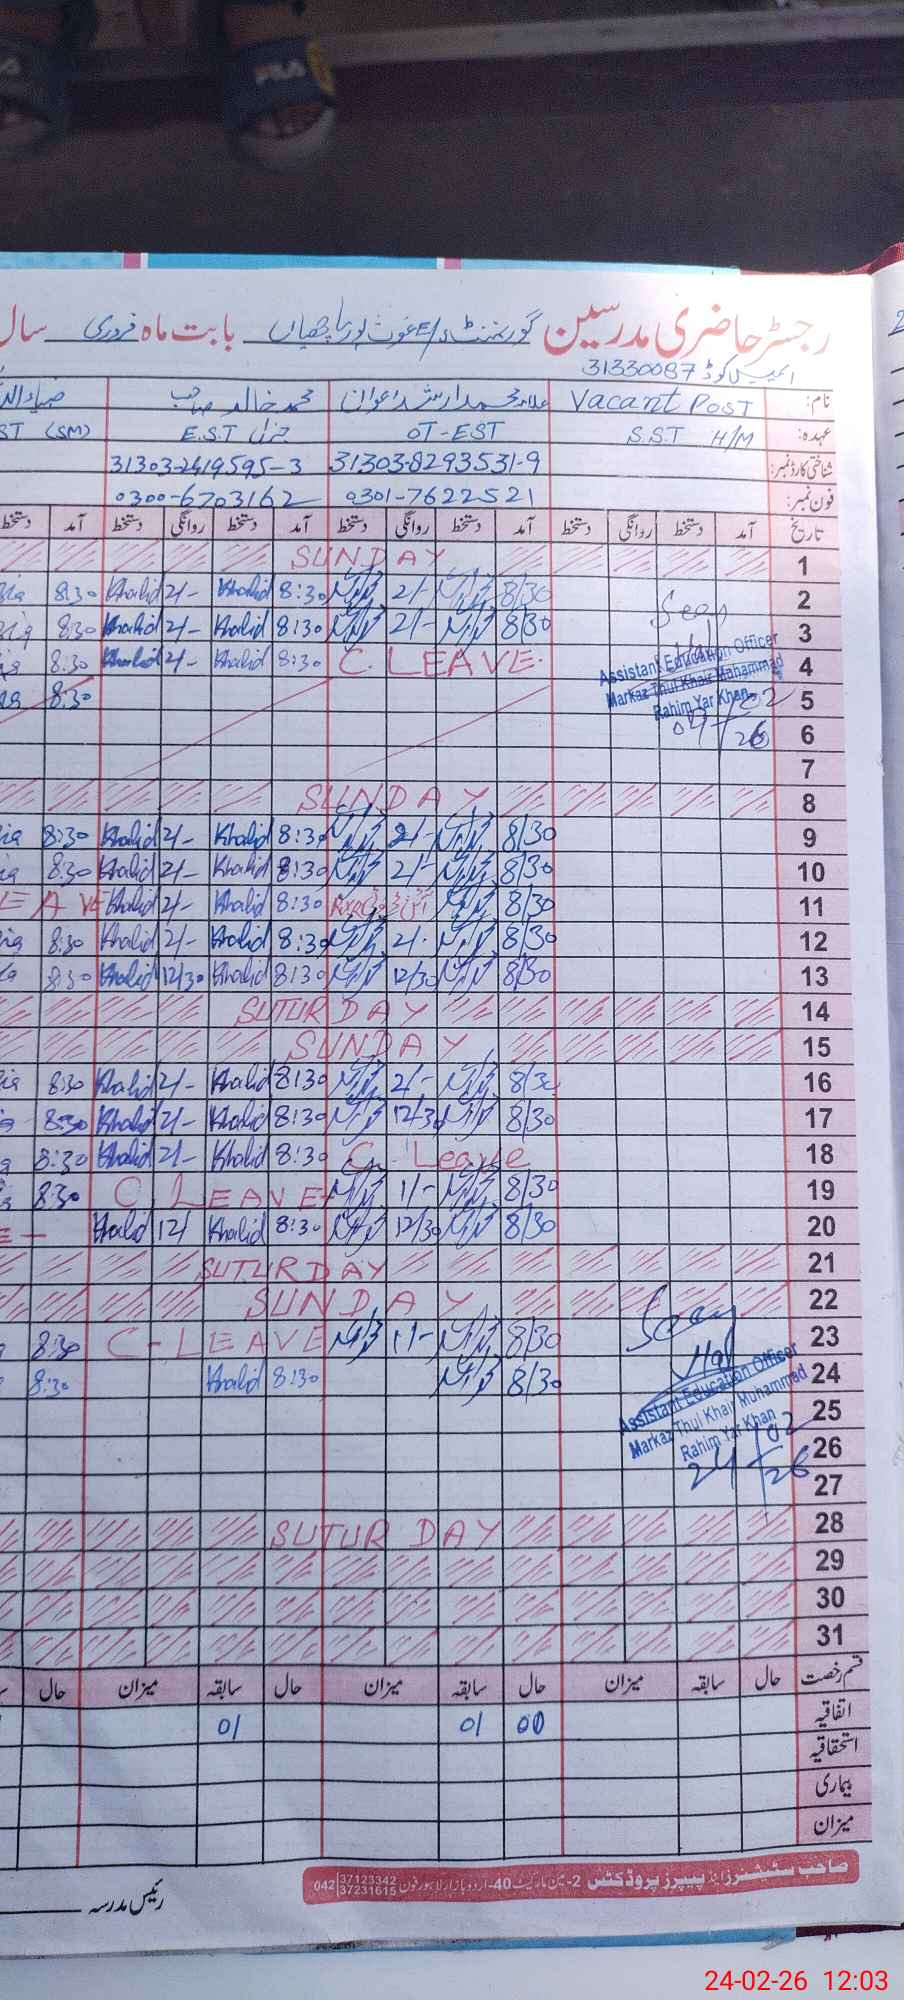 FILA
رجسٹر حاضری مدرسین گورنمنٹ بابت ماہ فروری سال
ایمیس کوڈ 31330087
نام: Vacant POST علامہ محمد ارشد اعوان محمد خالد صاحب
عہدہ: S.S.T H/M OT-EST E.S.T جنرل ST (SM)
شناختی کارڈ نمبر: 31303-8293531-9 31303-2419595-3
فون نمبر: 0301-7622521 0300-6703162
تاریخ آمد دستخط روانگی دستخط آمد دستخط روانگی دستخط آمد دستخط روانگی دستخط آمد دستخط
1 SUNDAY
2 8/30 2/- 8:30 Khalid 2/- Khalid 8:30
3 8/30 2/- 8:30 Khalid 2/- Khalid 8:30
4 C. LEAVE. 8:30 Khalid 2/- Khalid 8:30
5 8:30
6
7
8 SUNDAY
9 8/30 2/- 8:30 Khalid 2/- Khalid 8:30
10 8/30 2/- 8:30 Khalid 2/- Khalid 8:30
11 8/30 8:30 Khalid 2/- Khalid EAVE
12 8/30 2/- 8:30 Khalid 2/- Khalid 8:30
13 8/30 12/30 8:30 Khalid 12/30 Khalid 8:30
14 SUTURDAY
15 SUNDAY
16 8/30 2/- 8:30 Khalid 2/- Khalid 8:30
17 8/30 12/30 8:30 Khalid 2/- Khalid 8:30
18 C. Leave 8:30 Khalid 2/- Khalid 8:30
19 8/30 1/- C. LEAVE 8:30
20 8/30 12/30 8:30 Khalid 12/ Khalid E-
21 SUTURDAY
22 SUNDAY
23 8/30 1/- C-LEAVE 8:30
24 8/30 8:30 Khalid 8:30
25
26
27
28 SUTURDAY
29
30
31
Seen
Assistant Education Officer
Markaz Thul Khair Muhammad
Rahim Yar Khan
04/02/26
Seen
Assistant Education Officer
Markaz Thul Khair Muhammad
Rahim Yar Khan
24/02/26
قسم رخصت حال سابقہ میزان حال سابقہ میزان حال سابقہ میزان حال
اتفاقیہ 00 01 01
استحقاقیہ
بیماری
میزان
صاحب سٹیشنرز اینڈ پیپرز پروڈکٹس 2-مین مارکیٹ 40-اردو بازار لاہور فون 042 37123342 37231615
رئیس مدرسہ
24-02-26 12:03